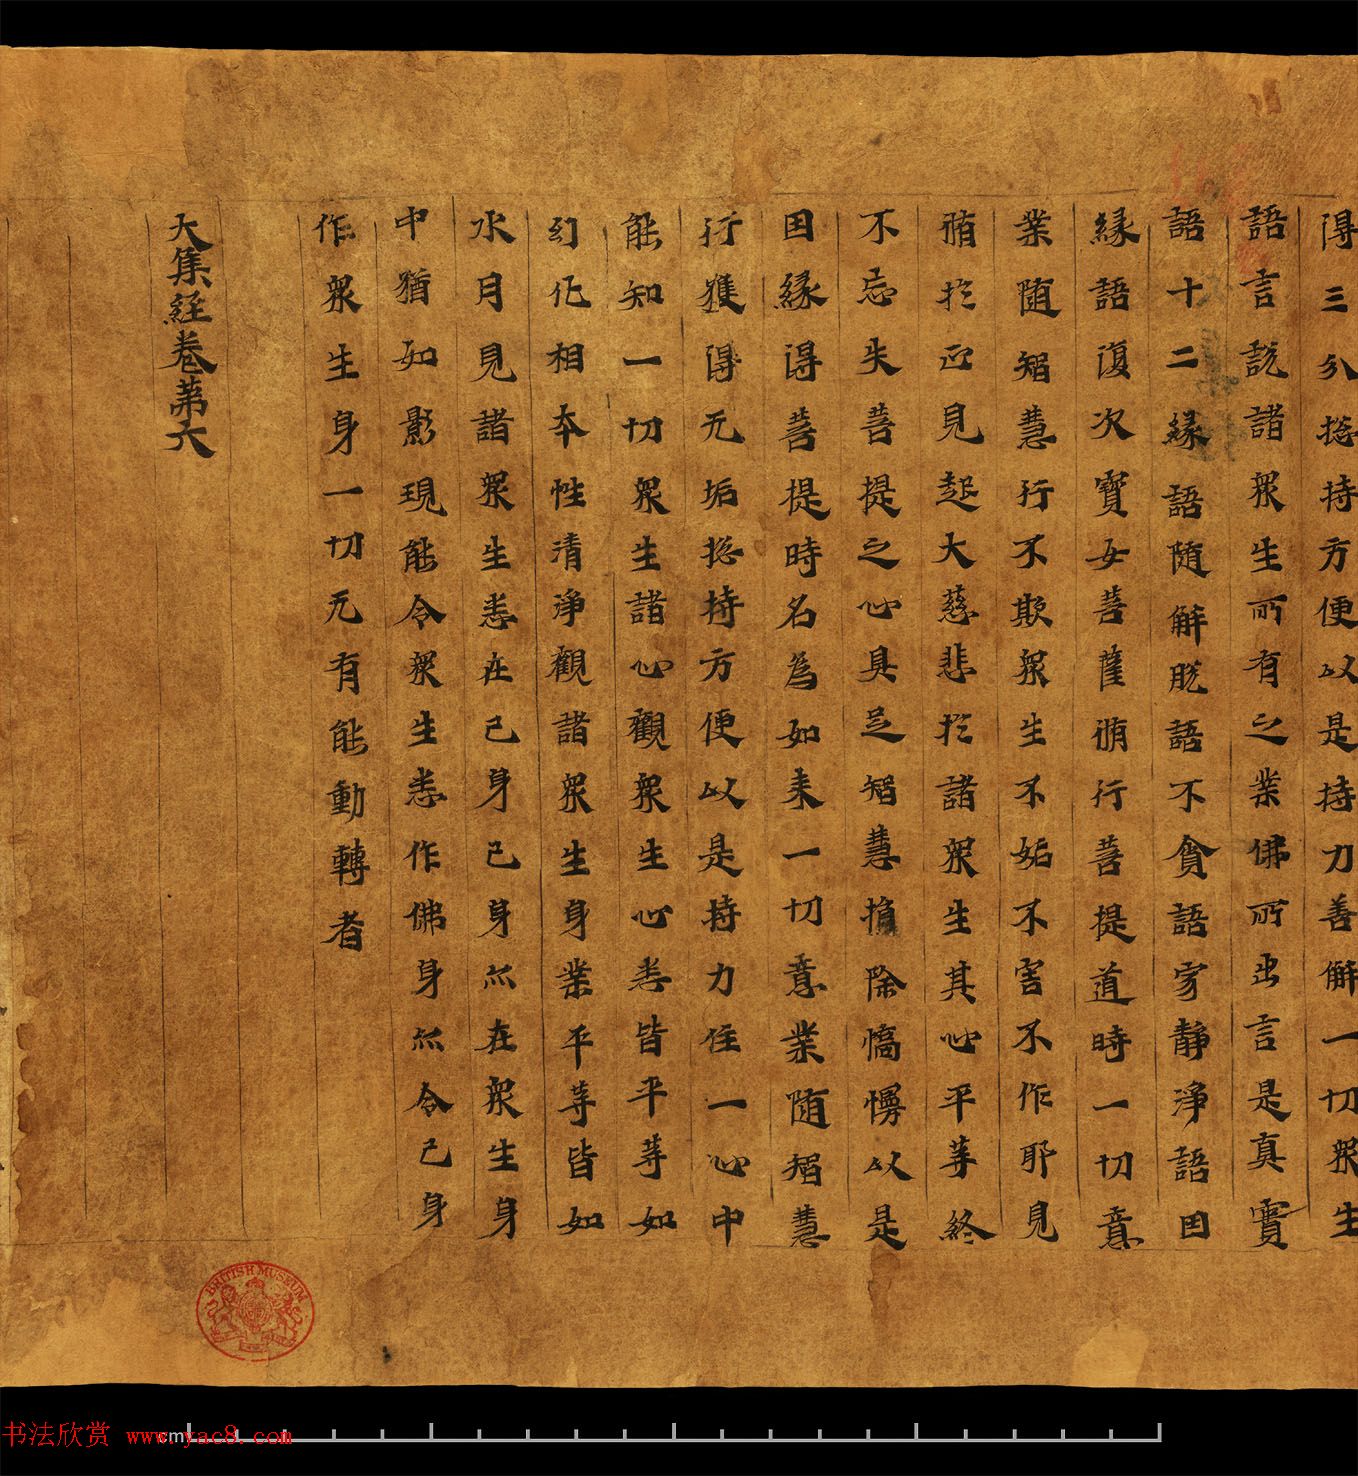 得三分捴持方便以是持力善解一切衆生
語言説諸衆生所有之業佛所出言是真實
語十二緣語隨解脱語不貪語寂靜淨語因
緣語復次寶女菩薩脩行菩提道時一切意
業隨智慧行不欺衆生不妬不害不作耶見
脩於正見起大慈悲於諸衆生其心平等終
不忘失菩提之心具足智慧損除憍慢以是
因緣得菩提時名為如来一切意業隨智慧
行獲得无垢捴持方便以是持力住一心中
能知一切衆生諸心觀衆生心悉皆平等如
幻化相本性清淨觀諸衆生身業平等皆如
水月見諸衆生悉在己身己身亦在衆生身
中猶如影現能令衆生悉作佛身亦令己身
作衆生身一切无有能動轉者
大集經卷第六
BRITISH MUSEUM
书法欣赏 www.yac8.com
cm